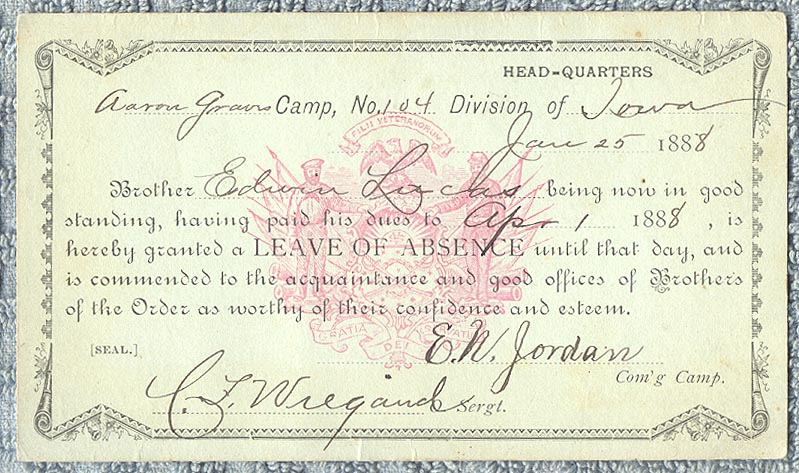 HEAD=QUARTERS
Aaron Graves Camp, No. 104 Division of Iowa
Jan 25 1888
FILII VETERANORUM
Brother Edwin Lucas being now in good
standing, having paid his dues to Apr 1 1888, is
hereby granted a LEAVE OF ABSENCE until that day, and
is commended to the acquaintance and good offices of Brothers
of the Order as worthy of their confidence and esteem.
GRATIA DEI
[SEAL.] E. W. Jordan
Com'g Camp.
C. F. Wiegand Sergt.